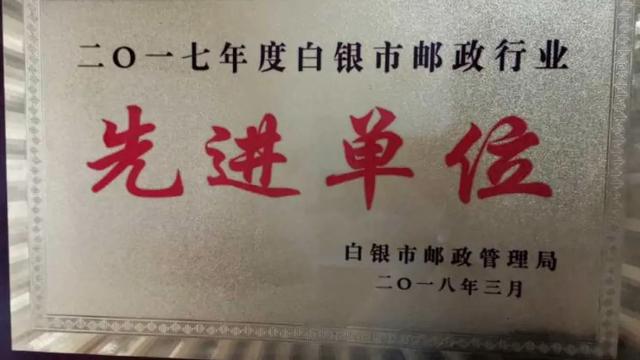 二〇一七年度白银市邮政行业
先进单位
白银市邮政管理局
二〇一八年三月